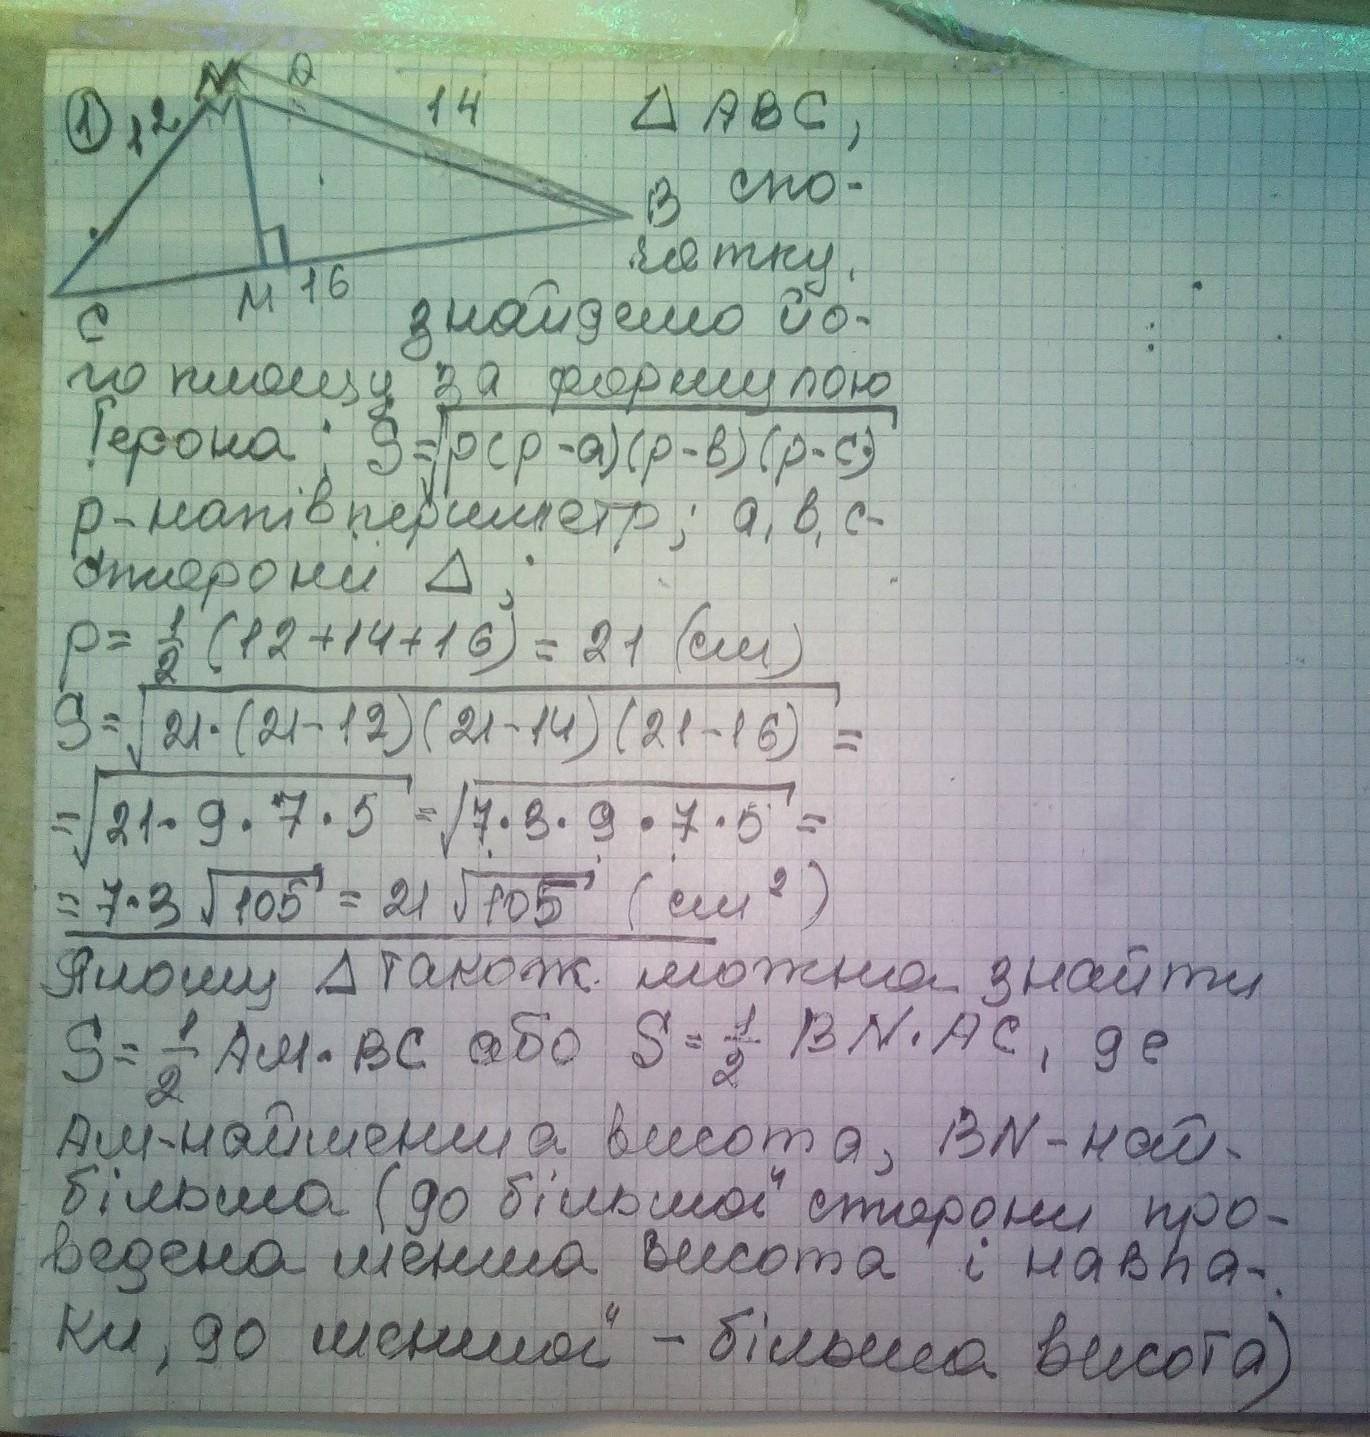 ① 12 N A 14 Δ ABC,
B спо-
чатку
C M 16 знайдемо йо-
го площу за формулою
Герона: S=√p(p-a)(p-в)(p-c)
p-напівпериметр; a, в, c-
сторони Δ;
p= 1/2 (12+14+16) = 21 (см)
S=√21·(21-12)(21-14)(21-16) =
=√21·9·7·5 =√7·3·9·7·5 =
=7·3√105 = 21√105 (см²)
Площу Δ також можна знайти
S= 1/2 AM·BC або S= 1/2 BN·AC, де
AM-найменша висота, BN-най-
більша (до більшої сторони про-
ведена менша висота і навпа-
ки, до меншої - більша висота)